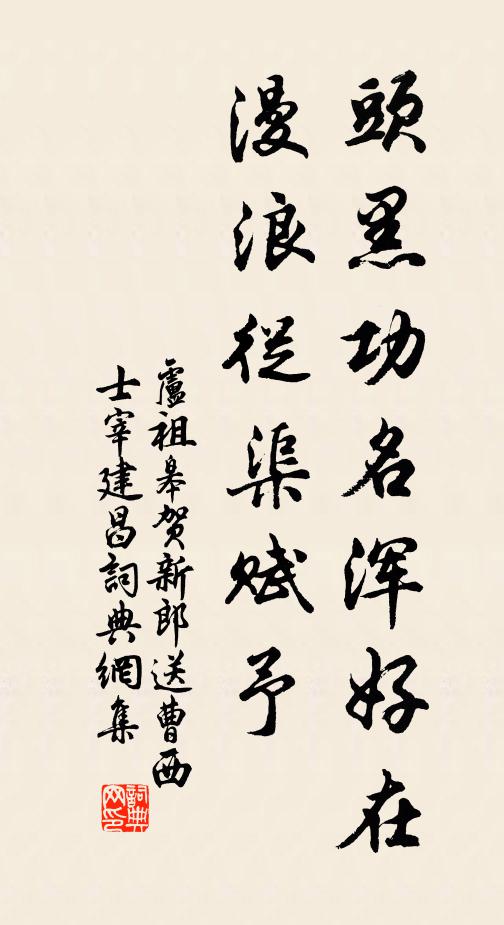 頭黑功名浑好在
漫浪從渠赋予
盧祖皋贺新郎送曹西
士宰建昌詞典網集
詞典
网印